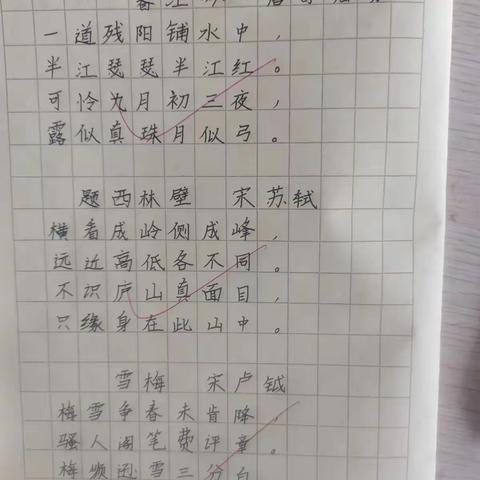 一道残阳铺水中，
半江瑟瑟半江红。
可怜九月初三夜，
露似真珠月似弓。
题西林壁 宋苏轼
横看成岭侧成峰，
远近高低各不同。
不识庐山真面目，
只缘身在此山中。
雪梅 宋卢钺
梅雪争春未肯降，
骚人阁笔费评章。
梅须逊雪三分白